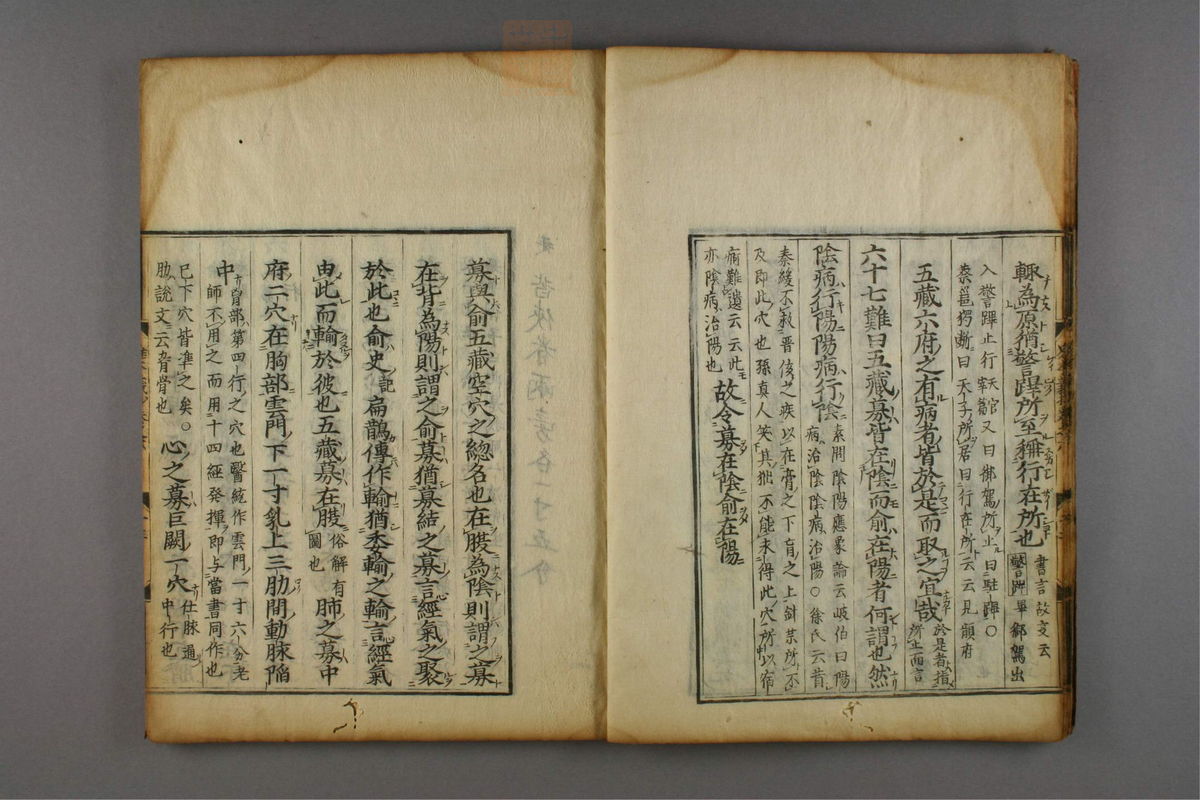 輙為原猶警蹕所至稱行在所也 書言故文云
警蹕畢御駕出
入警蹕止行天官宰醫又曰御駕所止曰駐蹕〇
蔡邕獨斷曰天子所居曰行在所云云見顏府
五藏六府之有病者皆於是而取之宜哉 於是者指
所止而言
六十七難曰五藏募皆在陰而俞在陽者何謂也然
陰病行陽陽病行陰 素問陰陽應象論云岐伯曰陽
病治陰陰病治陽〇徐氏云昔
秦緩不救晋侯之疾以在膏之下肓之上針藥所不
及即此穴也孫真人笑其拙不能未得此穴所以宿
痾難遣云云此
亦陰病治陽也 故令募在陰俞在陽
募與俞五藏空穴之緫名也在腹為陰則謂之募
在背為陽則謂之俞募猶募結之募言經氣之聚
於此也俞史記扁鵲傳作輸猶委輸之輸言經氣
由此而輸於彼也五藏募在腹 俗解有
圖也 肺之募中
府二穴在胸部雲門下一寸乳上三肋間動脉陷
中 胷部第四行之穴也醫統作雲門一寸六分老
師不用之而用十四經発揮即与當書同作也
已下穴皆準之矣〇
肋說文云脅骨也 心之募巨闕一穴 仕脉通
中行也